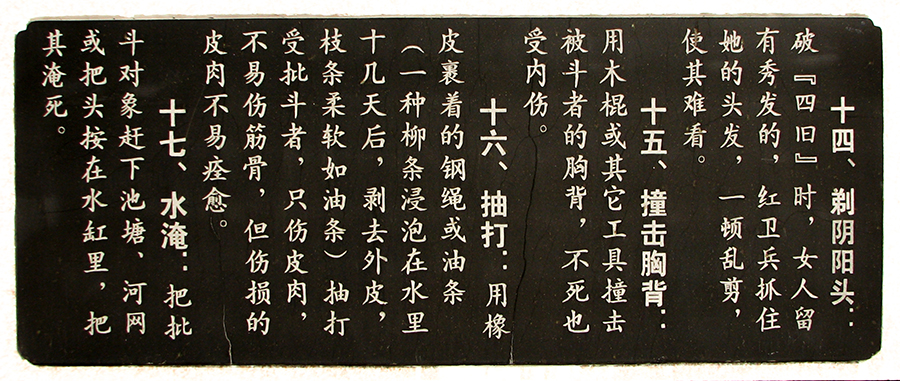 十四、剃阴阳头：
破『四旧』时，女人留
有秀发的，红卫兵抓住
她的头发，一顿乱剪，
使其难看。
十五、撞击胸背：
用木棍或其它工具撞击
被斗者的胸背，不死也
受内伤。
十六、抽打：用橡
皮裹着的钢绳或油条
（一种柳条浸泡在水里
十几天后，剥去外皮，
枝条柔软如油条）抽打
受批斗者，只伤皮肉，
不易伤筋骨，但伤损的
皮肉不易痊愈。
十七、水淹：把批
斗对象赶下池塘、河网
或把头按在水缸里，把
其淹死。